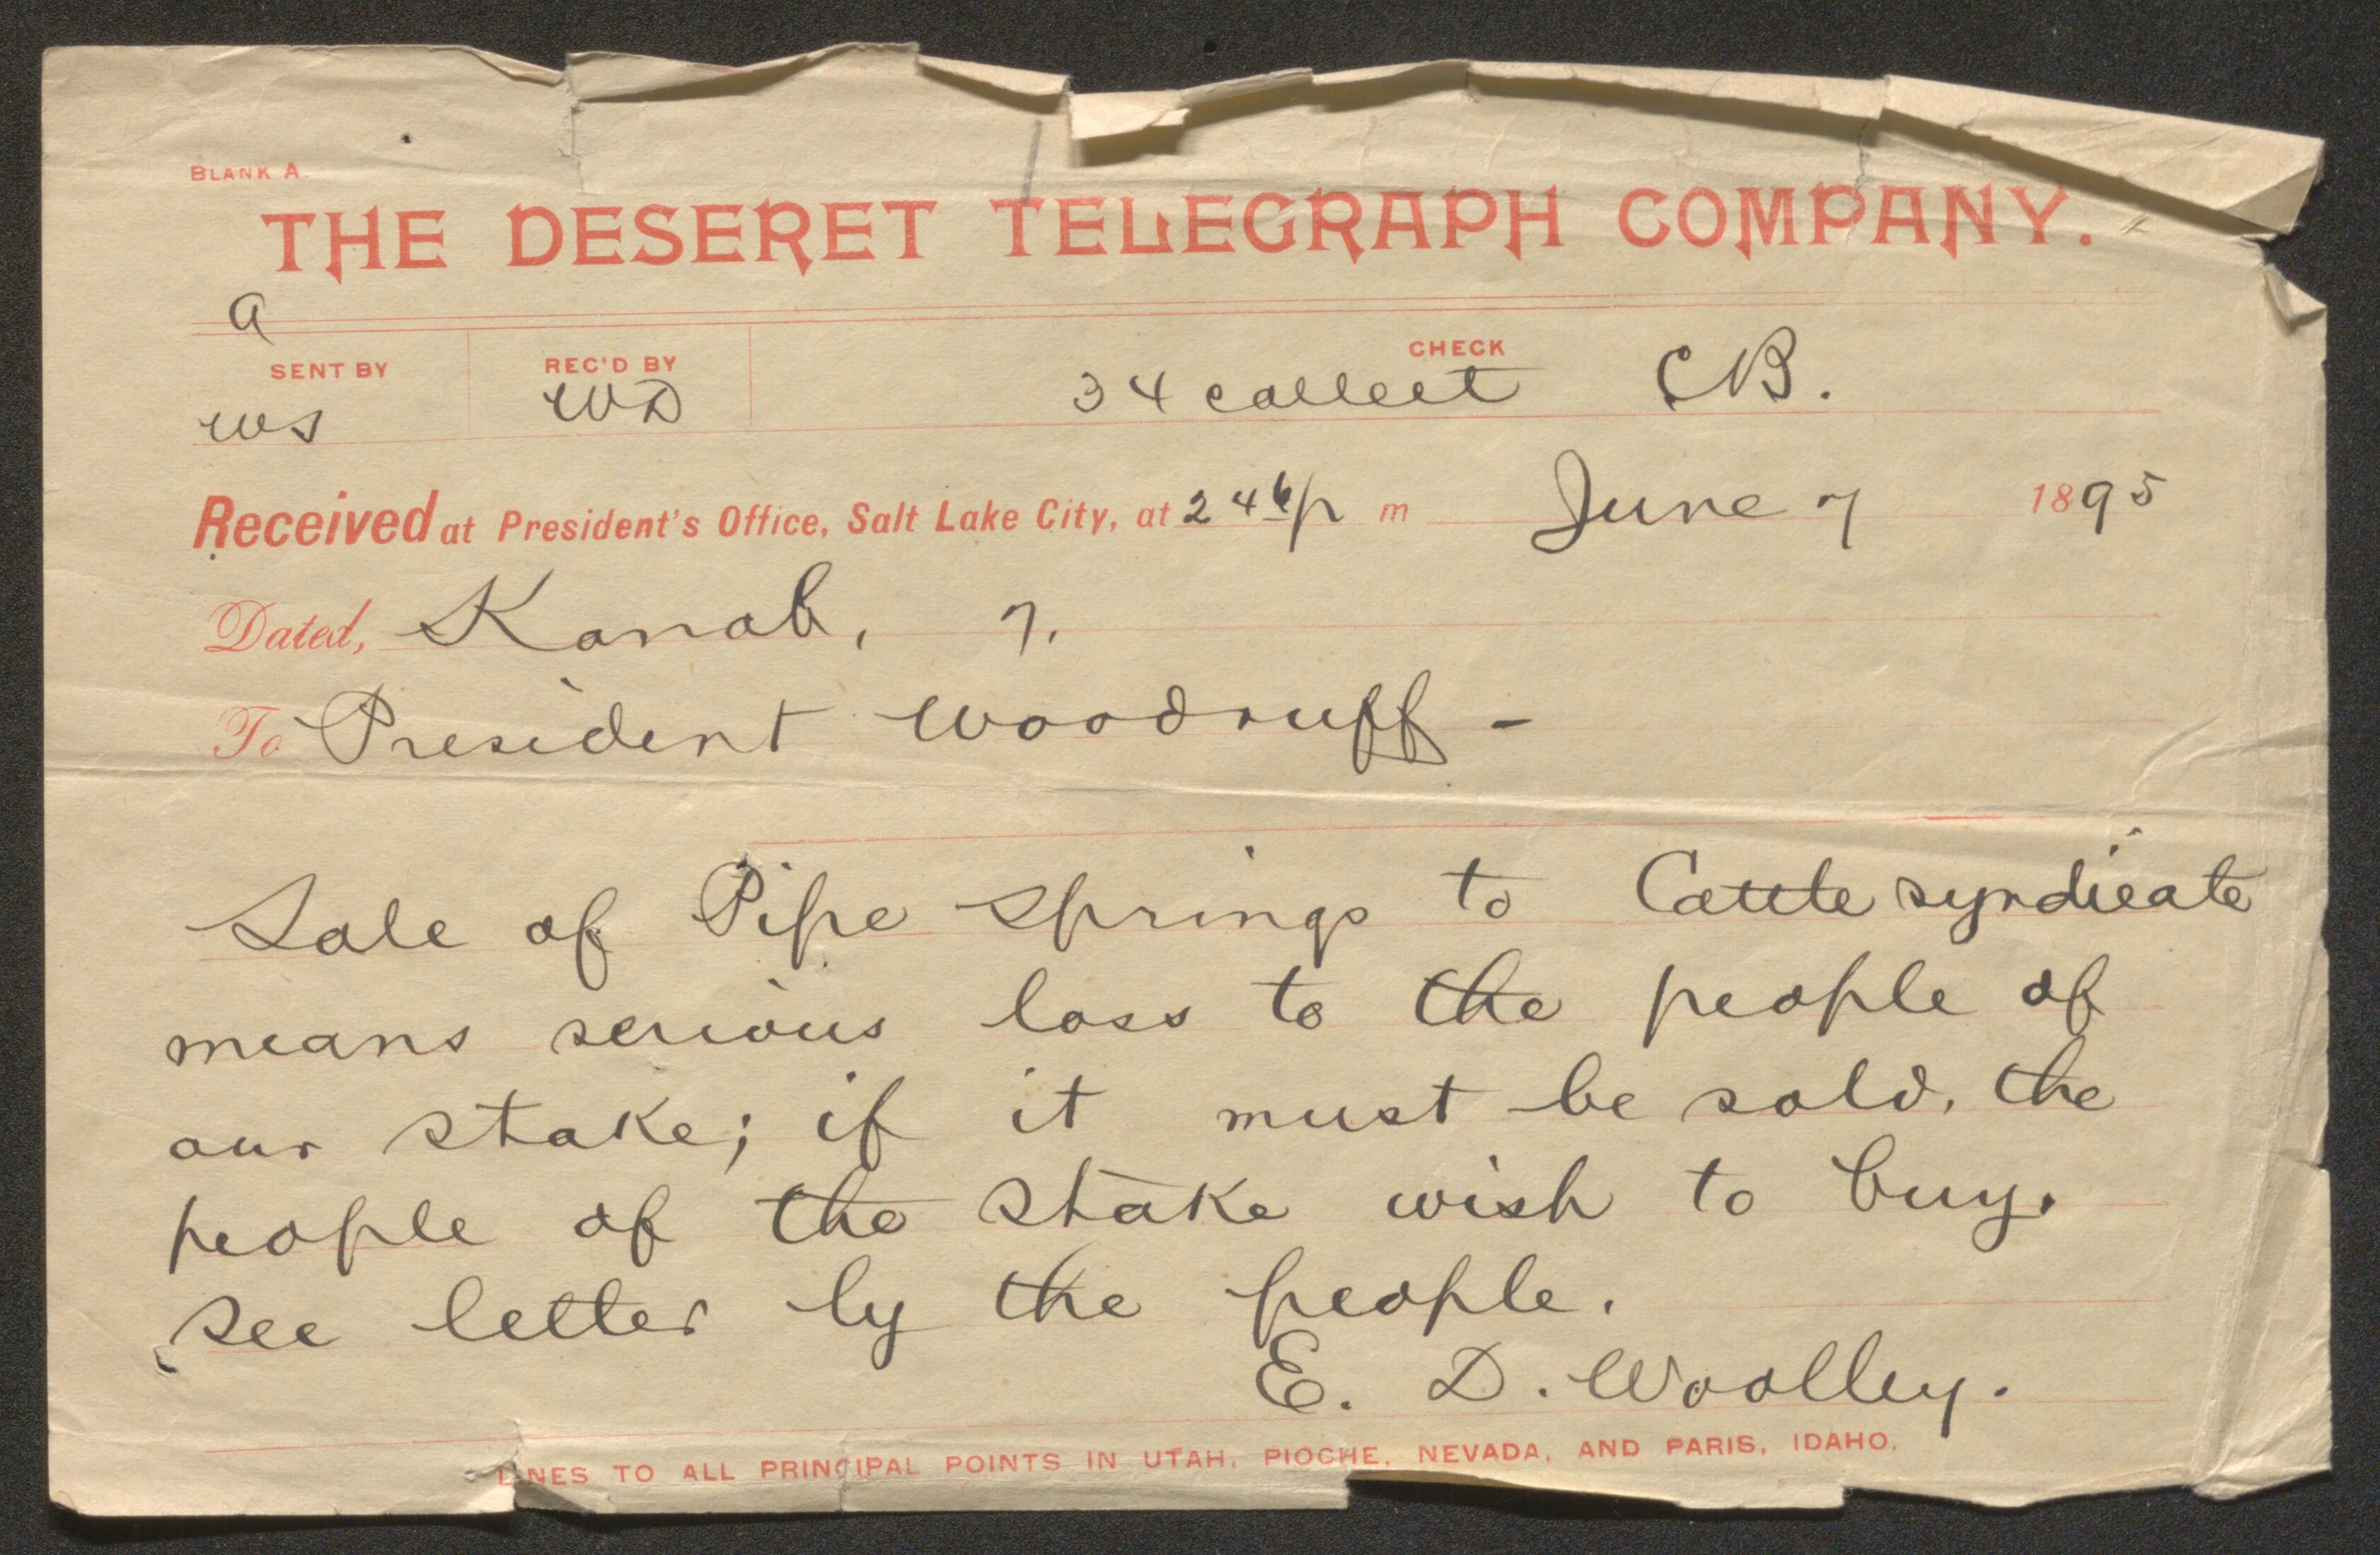 BLANK A.
THE DESERET TELEGRAPH COMPANY.
a
SENT BY REC'D BY CHECK
WS WD 34 collect CB.
Received at President's Office, Salt Lake City, at 2 46 p m June 7 1895
Dated, Kanab, 7.
To President Woodruff -
Sale of Pipe Springs to Cattle syndicate
means serious loss to the people of
our stake; if it must be sold, the
people of the stake wish to buy.
See letter by the people.
E. D. Woolley.
LINES TO ALL PRINCIPAL POINTS IN UTAH, PIOCHE, NEVADA, AND PARIS, IDAHO.